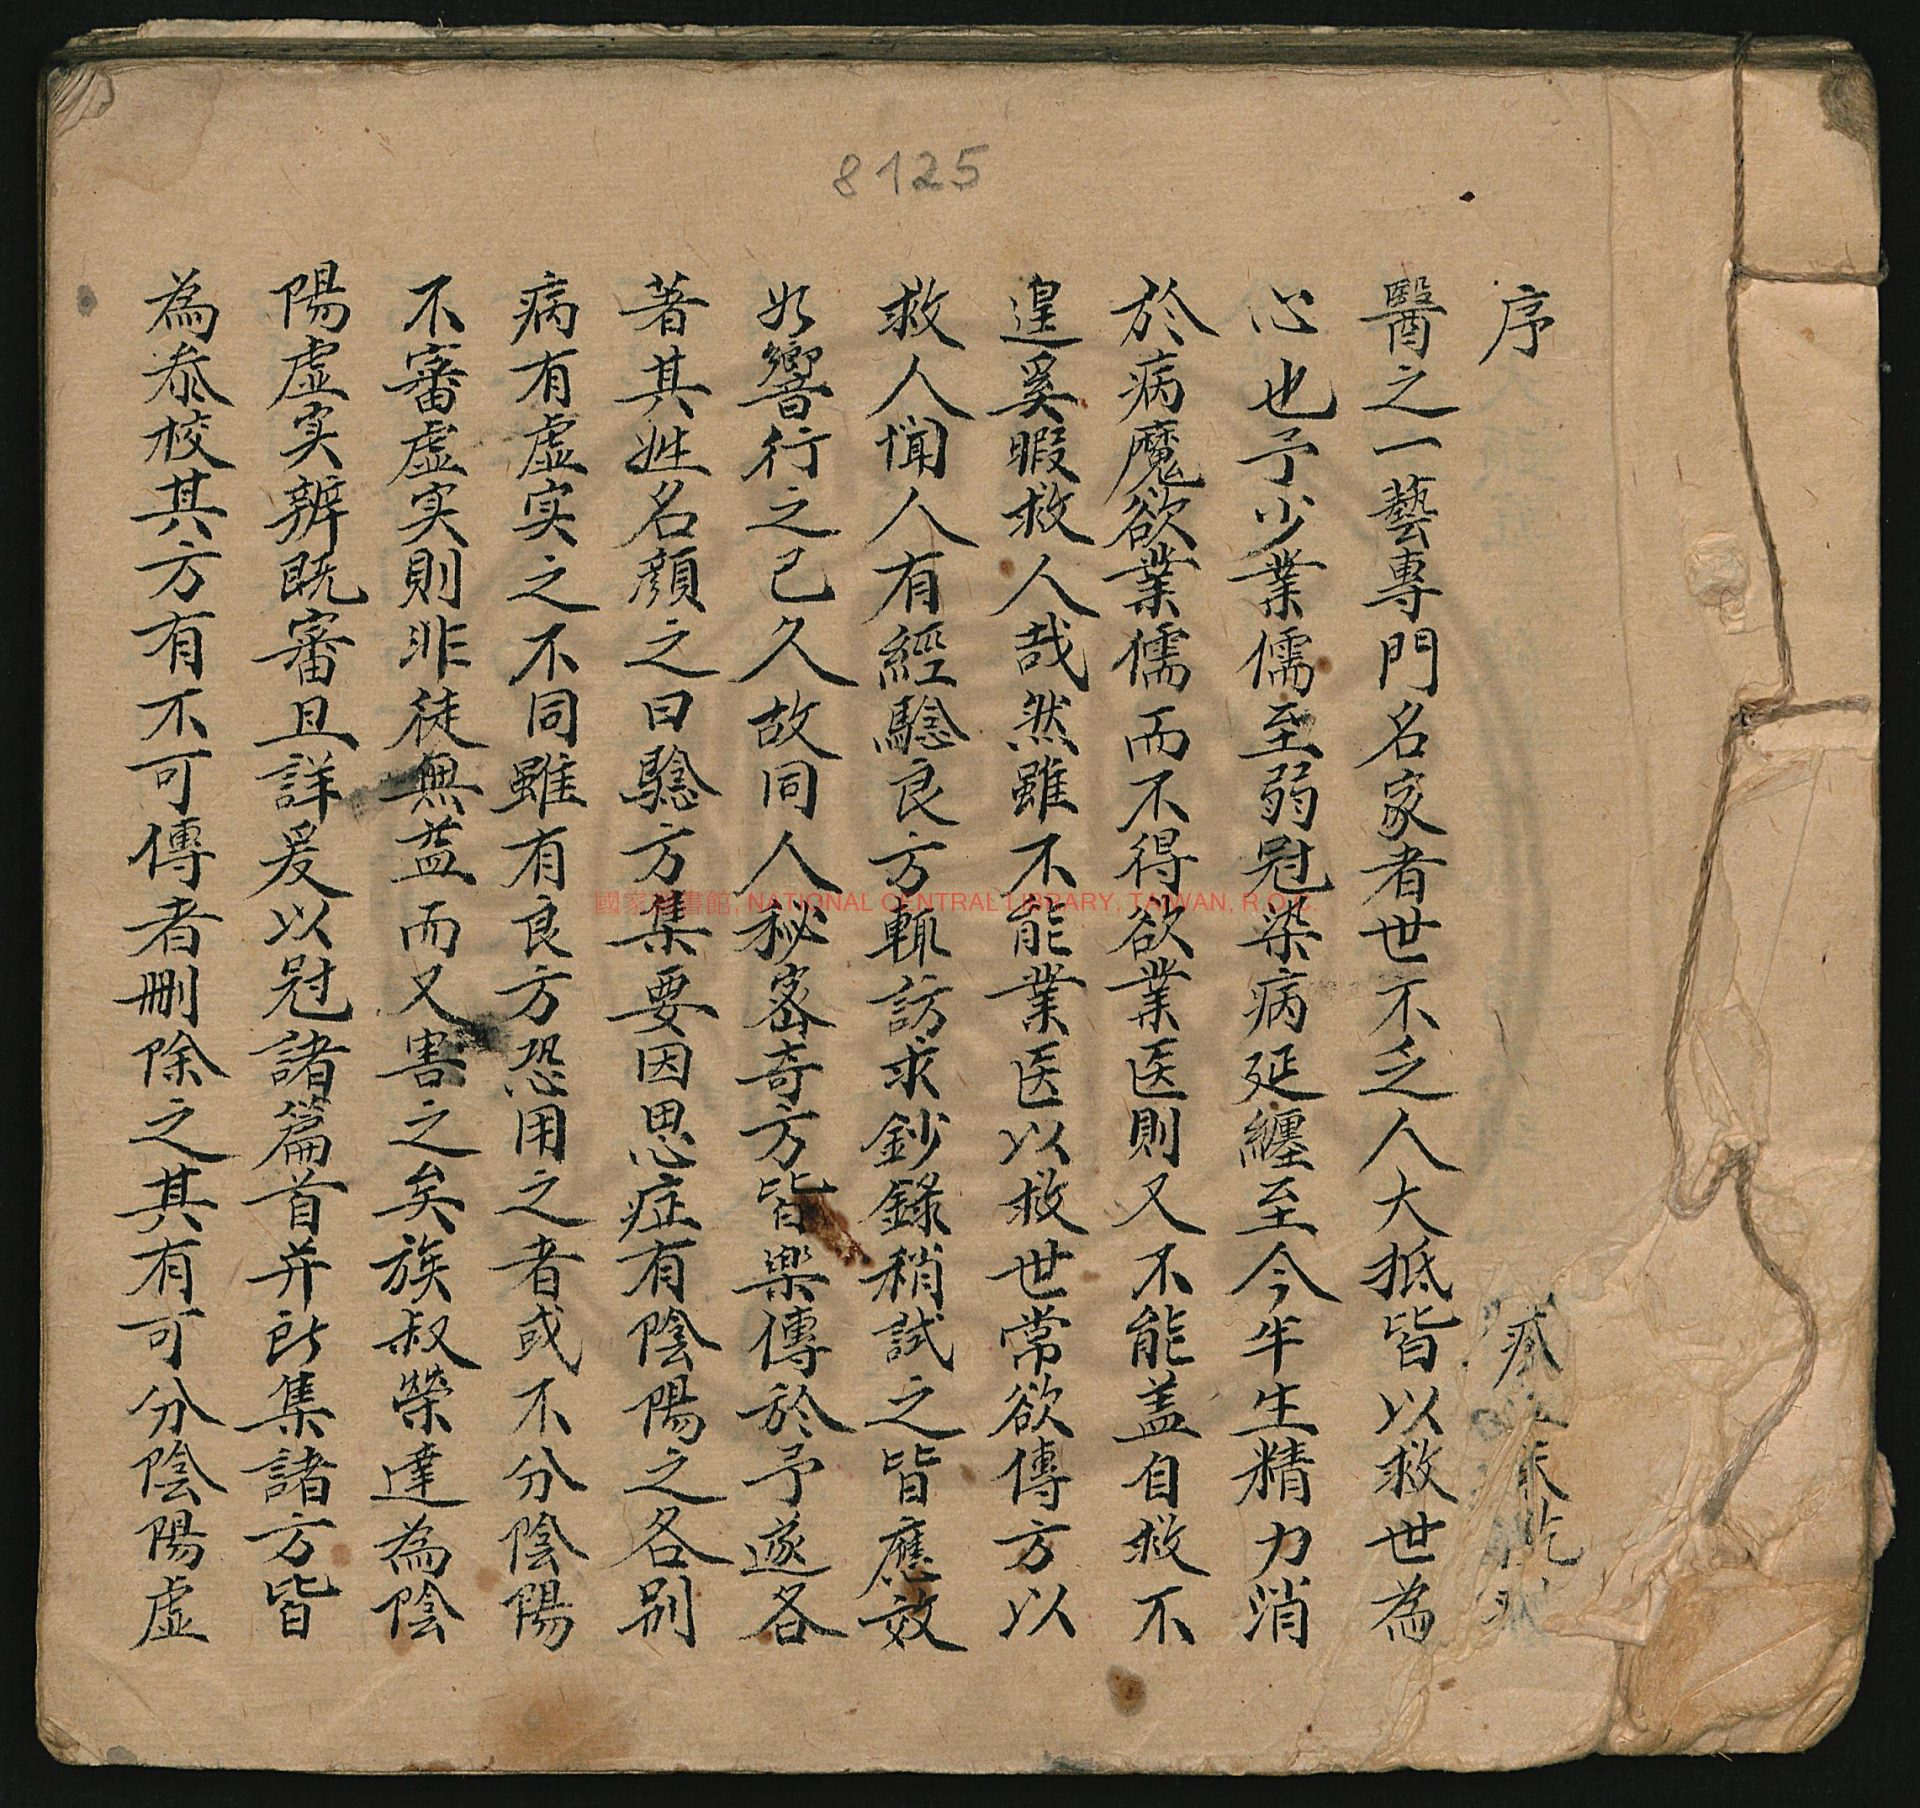 8125
序
醫之一藝專門名家者世不乏人大抵皆以救世為
心也予少業儒至弱冠染病延纏至今半生精力消
於病魔欲業儒而不得欲業医則又不能盖自救不
遑奚暇救人哉然雖不能業医以救世常欲傳方以
救人聞人有經騐良方輒訪求鈔錄稍試之皆應效
如響行之已久故同人秘密奇方皆樂傳於予遂各
著其姓名顏之曰騐方集要因思症有陰陽之各別
病有虛实之不同雖有良方恐用之者或不分陰陽
不審虛实則非徒無益而又害之矣族叔榮達為陰
陽虛实辨既審且詳爰以冠諸篇首并所集諸方皆
為叅校其方有不可傳者刪除之其有可分陰陽虛
國家圖書館, NATIONAL CENTRAL LIBRARY, TAIWAN, R.O.C.